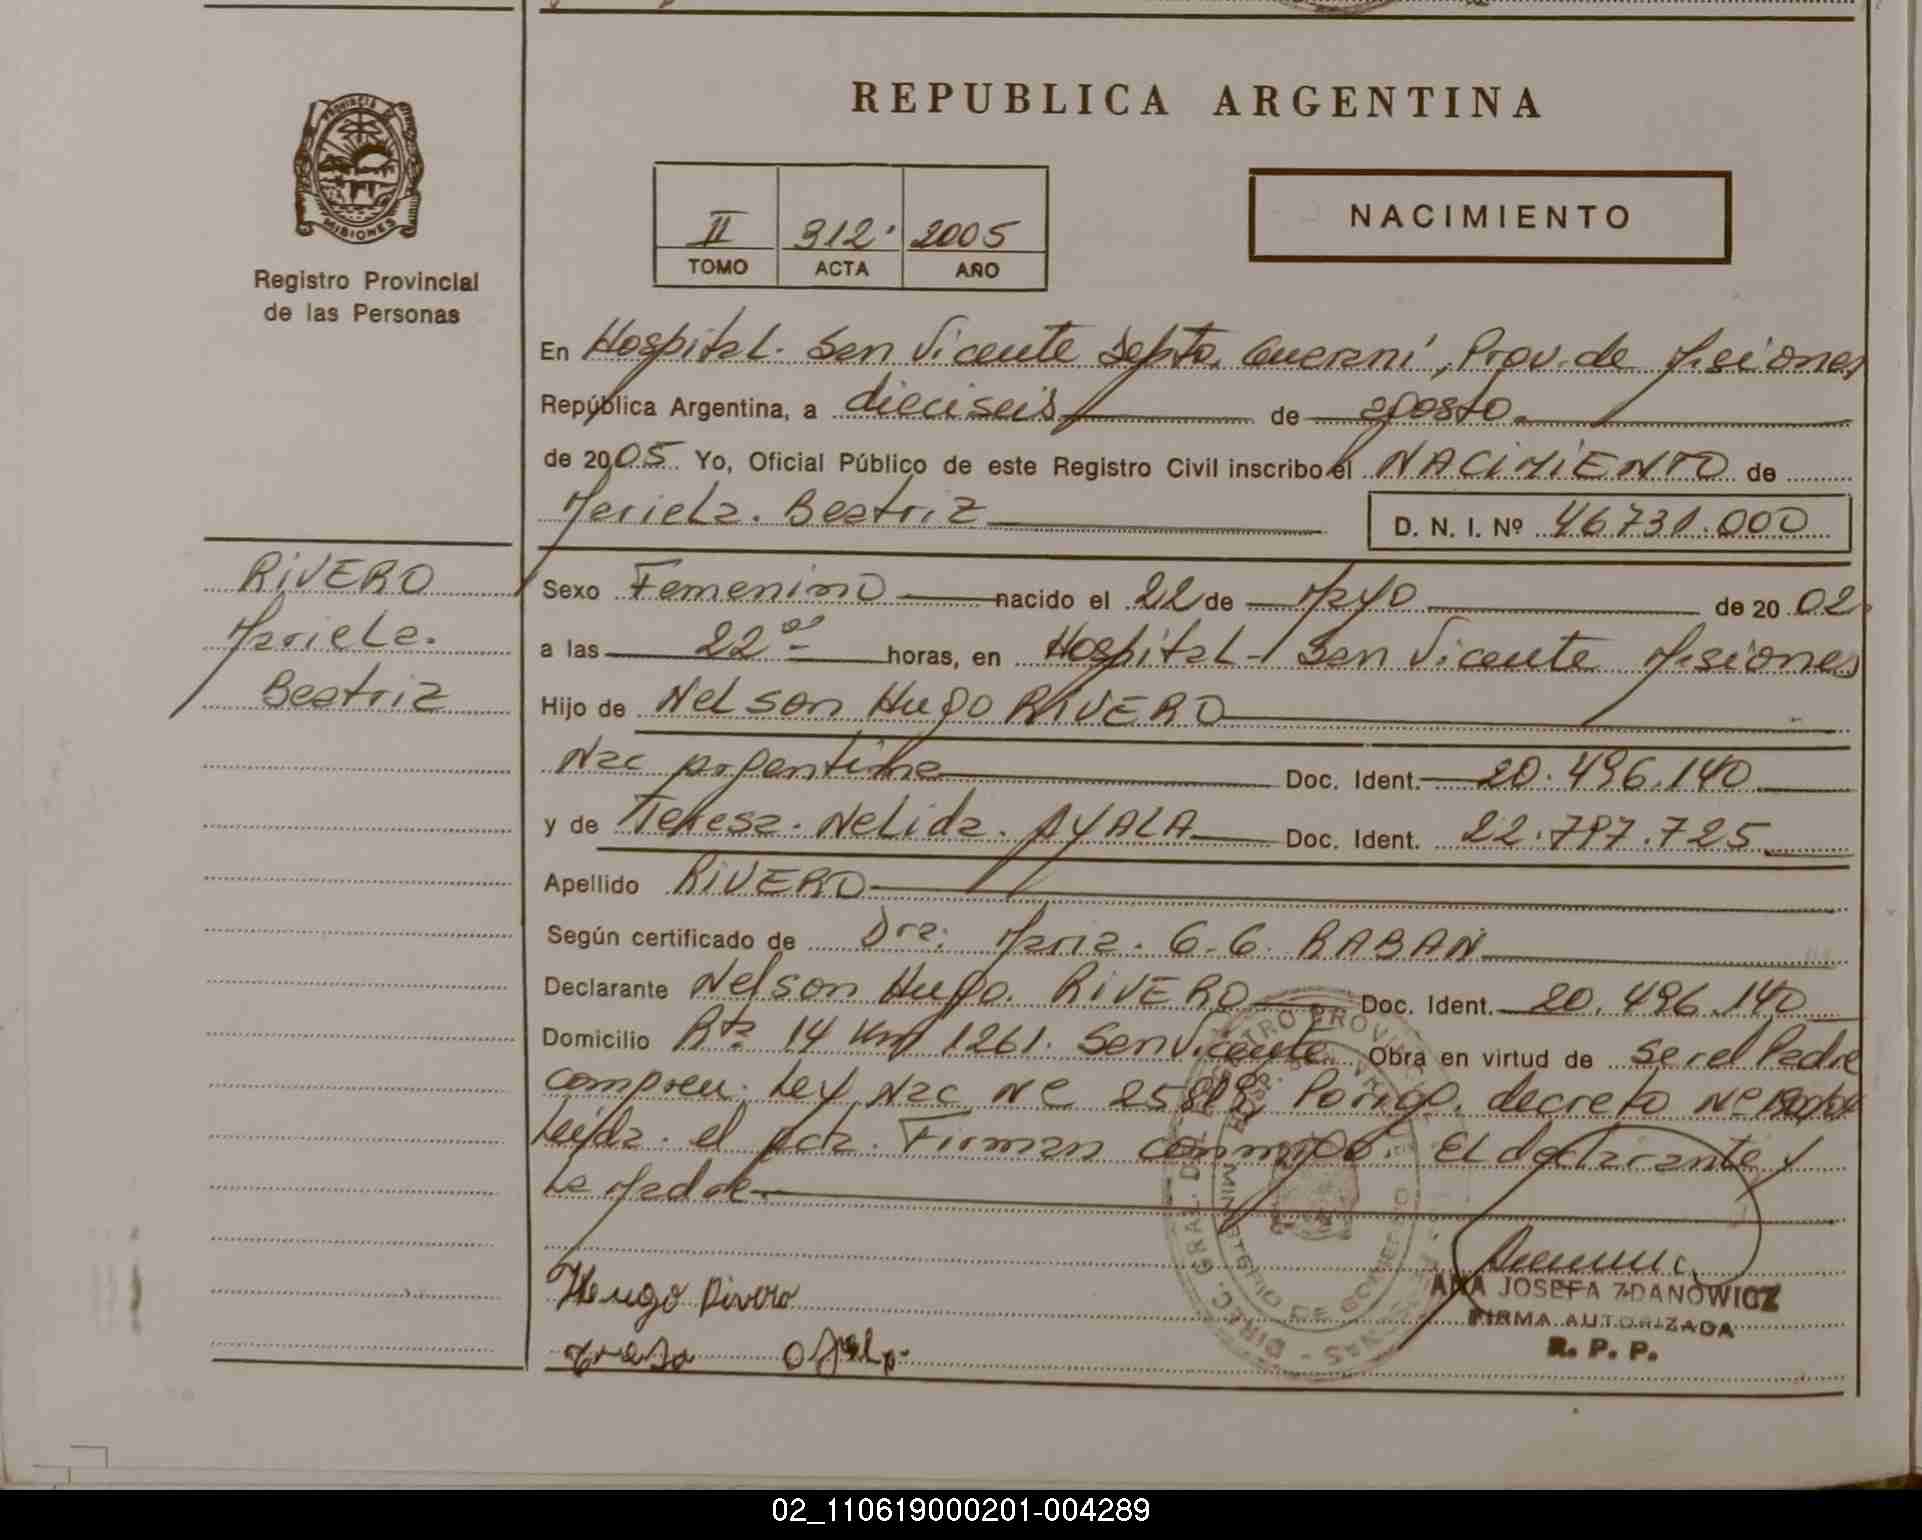 REPUBLICA ARGENTINA
PROVINCIA DE
MISIONES
Registro Provincial
de las Personas
II 312. 2005
TOMO ACTA AÑO
NACIMIENTO
En Hospital. San Vicente Depto. Guarani, Prov. de Misiones
República Argentina, a dieciseis de agosto
de 2005 Yo, Oficial Público de este Registro Civil inscribo el NACIMIENTO de
Mariela. Beatriz D. N. I. Nº 46.731.000
RIVERO
Mariela.
Beatriz
Sexo Femenino nacido el 22 de Mayo de 2002
a las 22 horas, en Hospital - San Vicente Misiones
Hijo de Nelson Hugo RIVERO
Nac argentina Doc. Ident. 20.496.140
y de Teresa. Nelida. AYALA Doc. Ident. 22.797.725
Apellido RIVERO
Según certificado de Dra. Maria. G. G. RABAN
Declarante Nelson Hugo. RIVERO Doc. Ident. 20.496.140
Domicilio Rta 14 Km 1261. San Vicente Obra en virtud de ser el Padre
Ley Nac Nº decreto Nº
Leida el Acta. Firman conmigo. El declarante y
La Madre
Hugo Rivero
ANA JOSEFA ZDANOWICZ
FIRMA AUTORIZADA
R. P. P.
MINISTERIO DE GOBIERNO
02_110619000201-004289